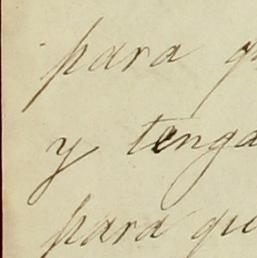 para q
y tenga
para que